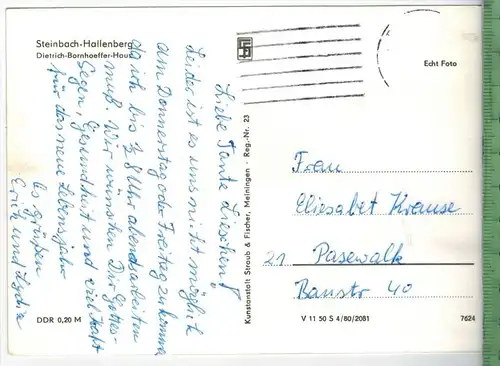 Steinbach-Hallenberg
Dietrich-Bonhoeffer-Haus
Echt Foto
Liebe Tante Lieschen!
Leider ist es uns nicht möglich
am Donnerstag oder Freitag zu kommen
da ich bis ½ 8 Uhr abends arbeiten
muß. Wir wünschen Dir Gottes-
Segen, Gesundheit und viel Kraft
für das neue Lebensjahr
Es grüßen
Erich und Lydia
Kunstanstalt Straub & Fischer, Meiningen · Reg.-Nr. 23
Frau
Eliesabet Krause
21 Pasewalk
Baustr 40
DDR 0,20 M
V 11 50 S 4/80/2081
7624